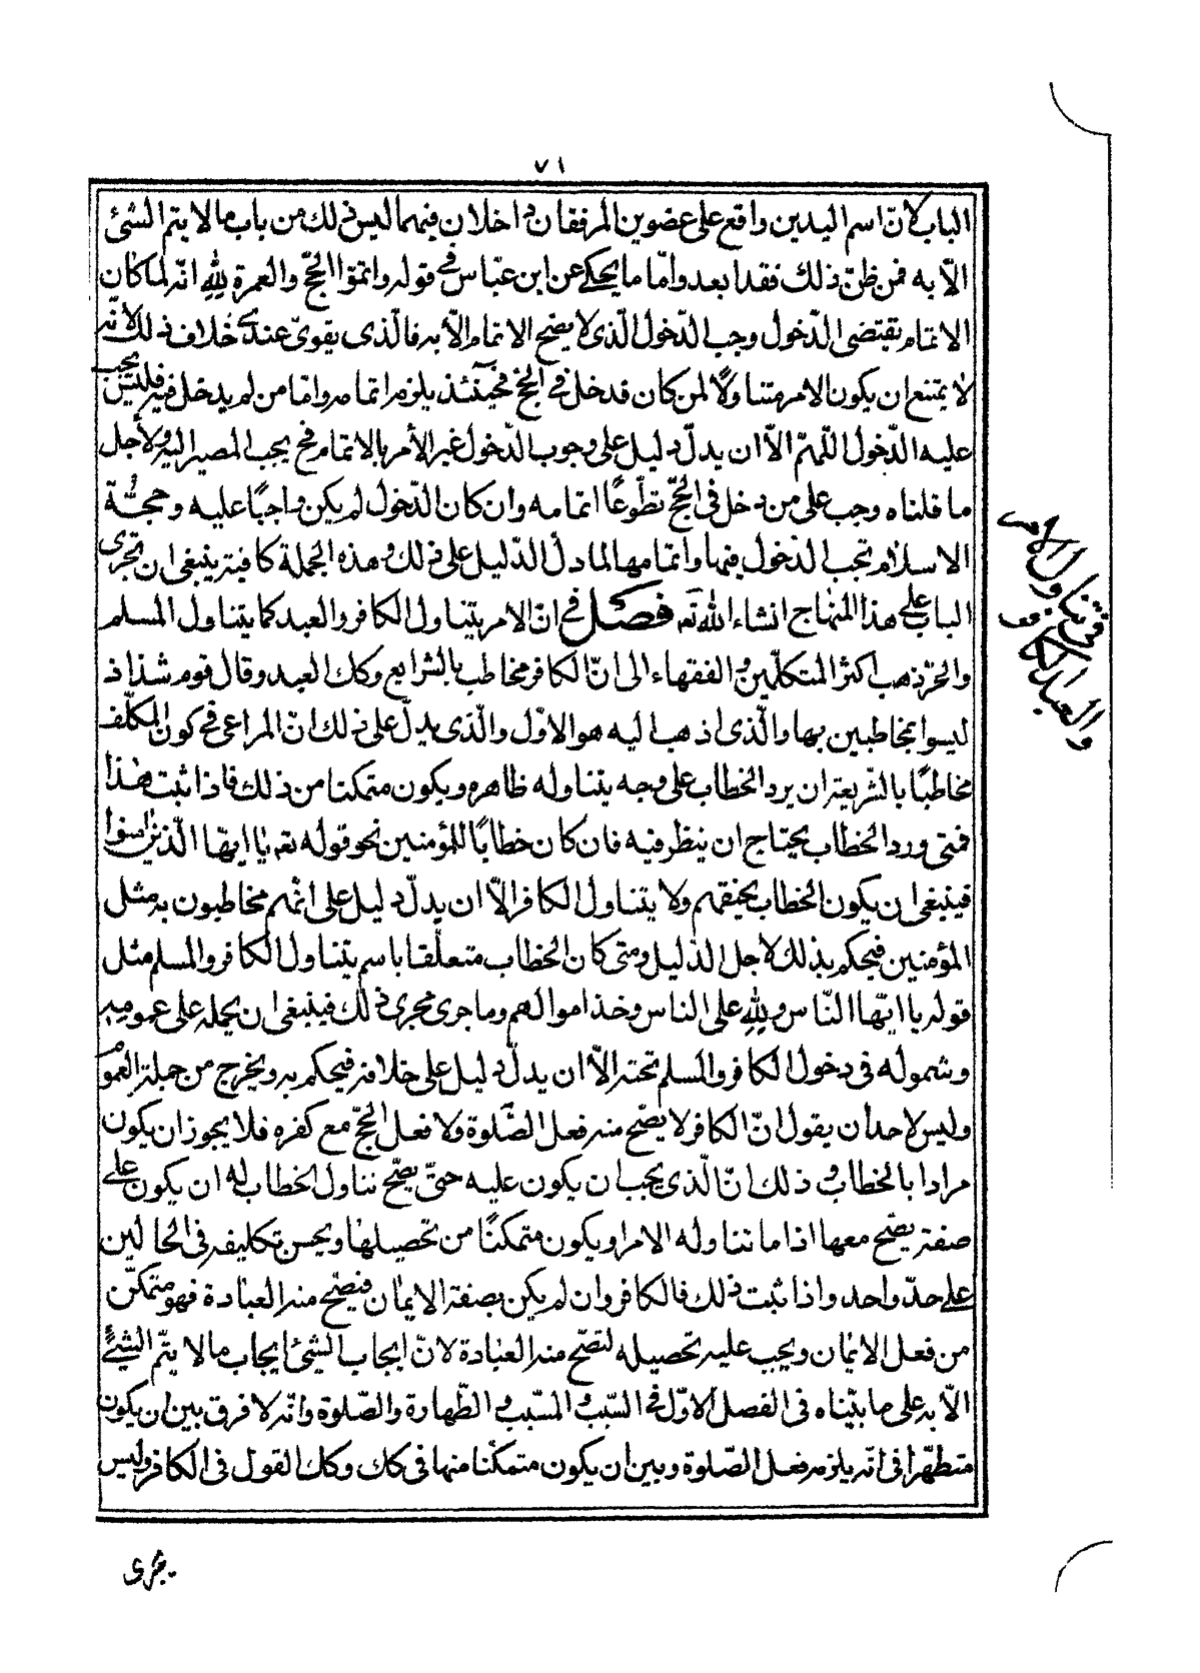 ٧١
الباب لانّ اسم اليدين واقع على عضوين المرفقان داخلان فيهما ليس ذلك من باب ما لا يتم الشئ
الّا به فمن ظنّ ذلك فقد ابعد وامّا ما يحكى عن ابن عبّاس فى قوله واتموا الحجّ والعمرة لله انّه لما كان
الاتمام يقتضى الدّخول وجب الدّخول الّذى لا يصّح الاتمام الّا به فالّذى يقوىّ عندى خلاف ذلك لانّه
لا يمتنع ان يكون الامر متناولًا لمن كان قد دخل فى الحجّ فحينئذ يلزمه اتمامه وامّا من لم يدخل فيه فليس يجب
عليه الدّخول اللّهمّ الّا ان يدلّ دليل على وجوب الدّخول غير الأمر بالاتمام فح يجب المصير اليه ولأجل
ما قلناه وجب على من دخل فى الحجّ تطّوعًا اتمامه وان كان الدّخول لم يكن واجبًا عليه وحجّة
الاسلام تجب الدخول فيها واتمامها لما دلّ الدّليل على ذلك وهذه الجملة كافية ينبغى ان تجرى
الباب على هذا المنهاج انشاء الله تع فصل فى انّ الامر يتناول الكافر والعبد كما يتناول المسلم
والحرّ ذهب اكثر المتكلّمين والفقهاء الى انّ الكافر مخاطب بالشرايع وكك العبد وقال قوم شذاذ
ليسوا بمخاطبين بها والّذى اذهب اليه هو الاوّل والّذى يدلّ على ذلك انّ المراعى فى كون المكلّف
مخاطبًا بالشّريعة ان يرد الخطاب على وجه يتناوله ظاهره ويكون متمكنا من ذلك فاذا ثبت هذا
فمتى ورد الخطاب يحتاج ان ينظر فيه فان كان خطابًا للمؤمنين نحو قوله تعه يا ايّها الّذين امنوا
فينبغى ان يكون الخطاب يختصّهم ولا يتناول الكافر الّا ان يدلّ دليل على انّهم مخاطبون به مثل
المؤمنين فيحكم بذلك لاجل الدّليل ومتى كان الخطاب متعلّقا باسم يتناول الكافر والمسلم مثل
قوله يا ايّها النّاس ولله على الناس وخذ اموالهم وما جرى مجرى ذلك فينبغى ان يحمله على عمومه
وشموله فى دخول الكافر والمسلم تحته الّا ان يدلّ دليل على خلافه فيحكم به ويخرج من جملة العموم
وليس لاحد ان يقول انّ الكافر لا يصّح منه فعل الصّلوة ولا فعل الحجّ مع كفره فلا يجوز ان يكون
مرادا بالخطاب وذلك انّ الّذى يجب ان يكون عليه حتّى يصّح تناول الخطاب له ان يكون على
صفة يصّح معها اذا ما تناوله الامر او يكون متمكنًا من تحصيلها ويحسن تكليفه فى الحالين
على حدّ واحد واذا ثبت ذلك فالكافر وان لم يكن بصفة الايمان فيصّح منه العبادة فهو متمكّن
من فعل الايمان ويجب عليه تحصيله لتصّح منه العبادة لانّ ايجاب الشئ ايجاب ما لا يتمّ الشئ
الّا به على ما بيّناه فى الفصل الاوّل فى السّبب والمسّبب والطّهارة والصّلوة وانّه لا فرق بين ان يكون
متطهّرا فى انّه يلزمه فعل الصّلوة وبين ان يكون متمكنا منها فى كك وكك القول فى الكافر وليس
يجرى
فى تناول الامر
العبد الكافر
والعبد